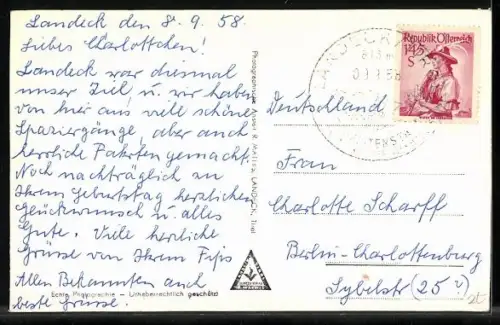 Landeck den 8.9.58.
Liebes Charlottchen!
Landeck war diesmal
unser Ziel u. wir haben
von hier aus viel schöne
Spaziergänge, aber auch
herrliche Fahrten gemacht.
Noch nachträglich zu
Ihrem Geburtstag herzlichen
Glückwunsch u. alles
Gute. Viele herzliche
Grüsse von Ihrem Fips
Allen Bekannten auch
beste Grüsse.
Echte Photographie – Urheberrechtlich geschützt
LANDECK, Tirol
Republik Österreich
1·45
S
Deutschland
Frau
Charlotte Scharff
Berlin-Charlottenburg
Sybelstr. (25